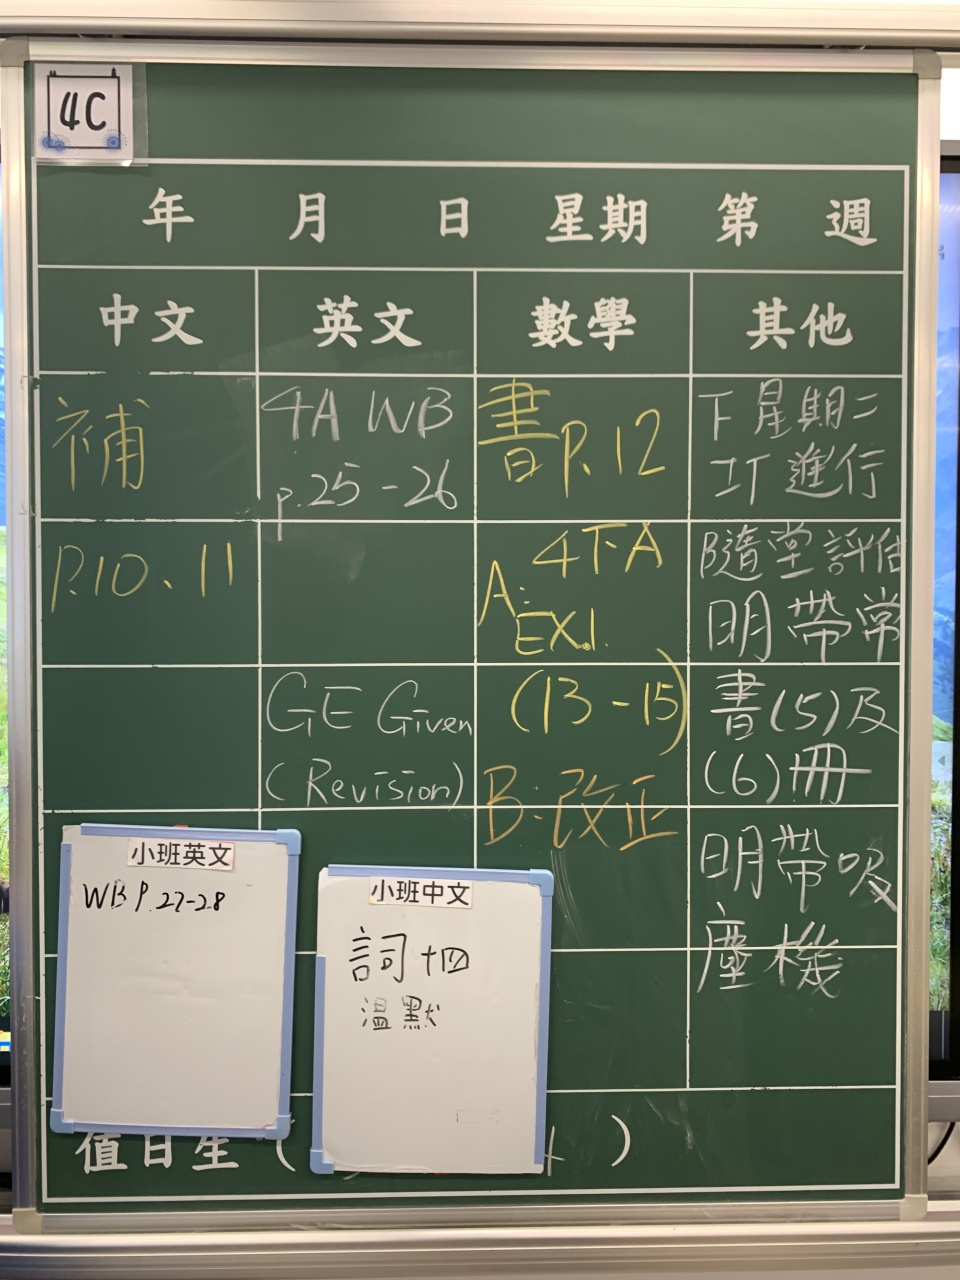 4C
年 月 日 星期 第 週
中文 英文 數學 其他
補
P.10、11
4A WB
p.25-26
GE Given
(Revision)
書P.12
4下A
A:
EX.1.
(13-15)
B:改正
下星期二
IT進行
隨堂評估
明帶常
書(5)及
(6)冊
明帶吸
塵機
小班英文
WB P.27-28
小班中文
詞十四
溫默
值日生( )